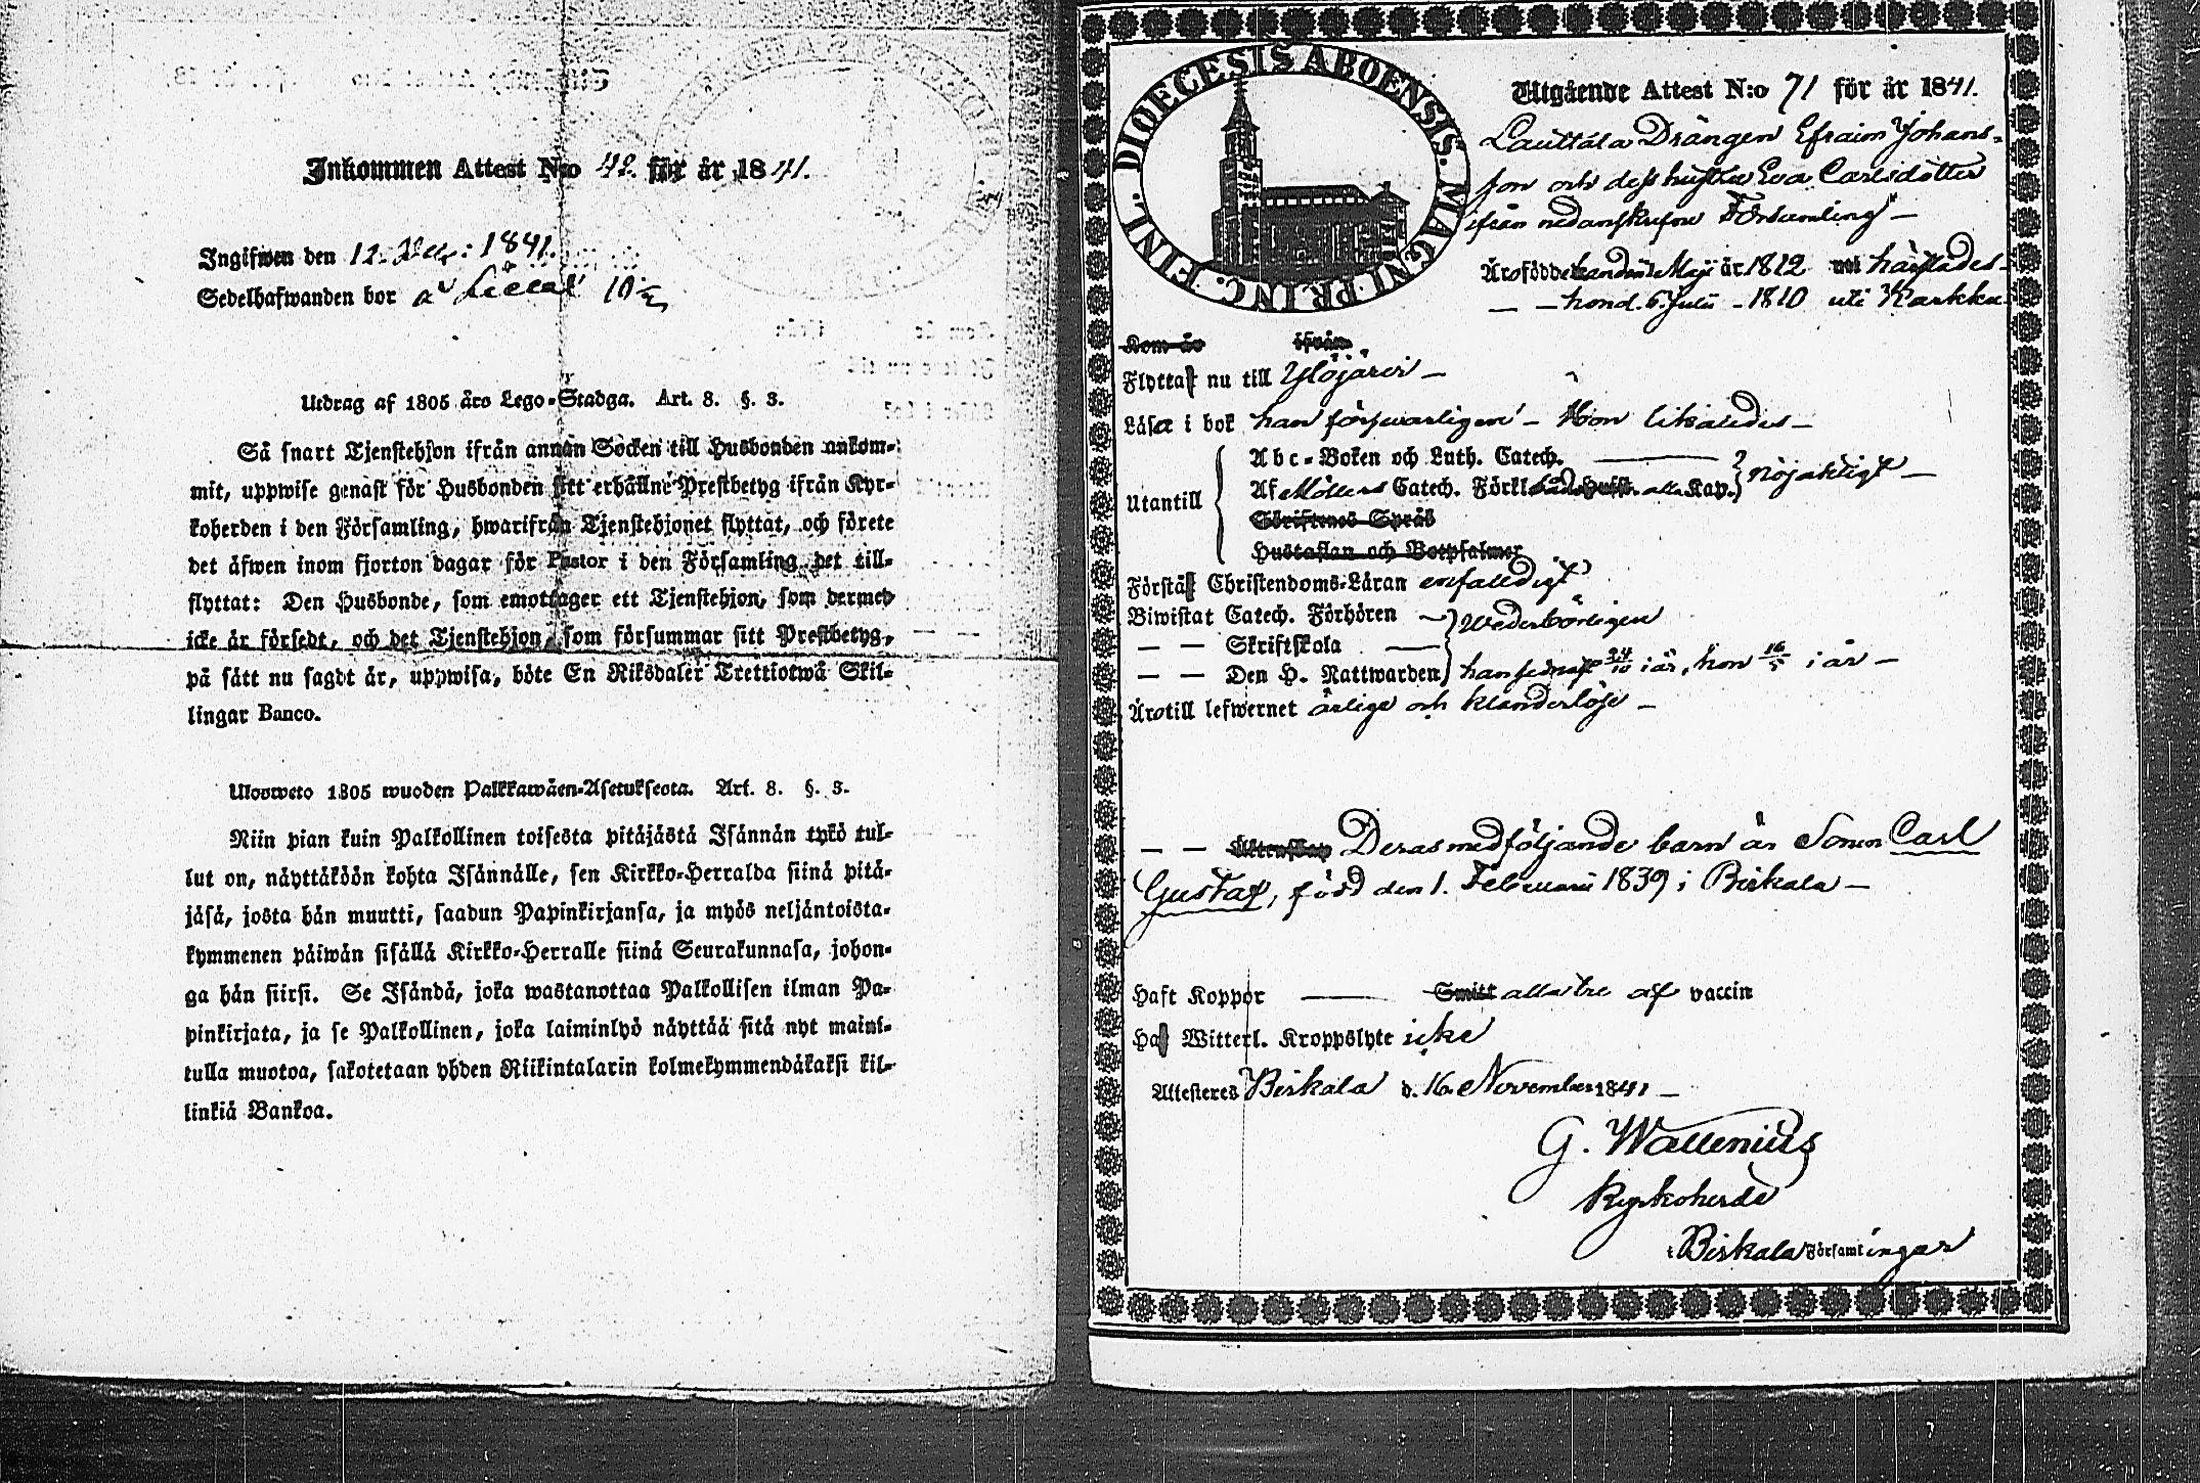 Inkommen Attest N:o 42. för år 1841.
Ingifwen den 12. : 1841.
Sedelhafwanden bor
Utdrag af 1805 års Lego-Stadga. Art. 8. §. 3.
Så snart Tjenstehjon ifrån annan Socken till Husbonden ankom-
mit, uppwise genast för Husbonden sitt erhållne Prestbetyg ifrån Kyr-
koherden i den Församling, hwarifrån Tjenstehjonet flyttat, och förete
det äfwen inom fjorton dagar för Pastor i den Församling det till-
flyttat: Den Husbonde, som emottager ett Tjenstehjon, som dermed
icke är försedt, och det Tjenstehjon, som försummar sitt Prestbetyg,
på sätt nu sagdt är, uppwisa, böte En Riksdaler Trettiotwå Skil-
lingar Banco.
Ulosweto 1805 wuoden Palkkawäen-Asetuksesta. Art. 8. §. 3.
Niin pian kuin Palkollinen toisesta pitäjästä Isännän tykö tul-
lut on, näyttäköön kohta Isännälle, sen Kirkko-Herralda siinä pitä-
jäsä, josta hän muutti, saadun Papinkirjansa, ja myös neljäntoista-
kymmenen päiwän sisällä Kirkko-Herralle siinä Seurakunnasa, johon-
ga hän siirsi. Se Isändä, joka wastanottaa Palkollisen ilman Pa-
pinkirjata, ja se Palkollinen, joka laiminlyö näyttää sitä nyt maini-
tulla muotoa, sakotetaan yhden Riikintalarin kolmekymmendäkaksi kil-
linkiä Bankoa.
FINL. DIOECESIS ABOENSIS. MAGNI PRINC.
Utgående Attest N:o 71 för år 1841.
Lauttala Drängen Efraim Johans-
son och dess hustru Eva Carlsdotter
ifrån nedanskrefne Församling –
Äro födde han den Maji år 1812 uti
— — hon d. 6 Julii – 1810 uti Karkku
Kom år ifrån
Flytta nu till Ylöjärvi –
Läsa i bok han försvarligen – Hon likaledes –
Utantill
Abc-Boken och Luth. Catech. ——
Af Möllers Catech. Förkl. alla Kap. nöjaktigt –
Skriftenes Språk
Hustaflan och Botpsalmer
Förstå Christendoms-Läran enfaldigt
Biwistat Catech. Förhören – wederbörligen
— — Skriftskola ——
— — Den H. Nattwarden han senast 24/10 i år, hon 16/5 i år –
Äro till lefwernet ärlige och klanderlöse –
— — Äktenskap Deras medföljande barn är Sonen Carl
Gustaf, född den 1. Februarii 1839 i Birkala –
Haft Koppor —— Smitt alla tre af vaccin
Ha Witterl. Kroppslyte icke
Attesteres Birkala d. 16 November 1841 –
G. Wallenius
Kyrkoherde
i Birkala Församlingar